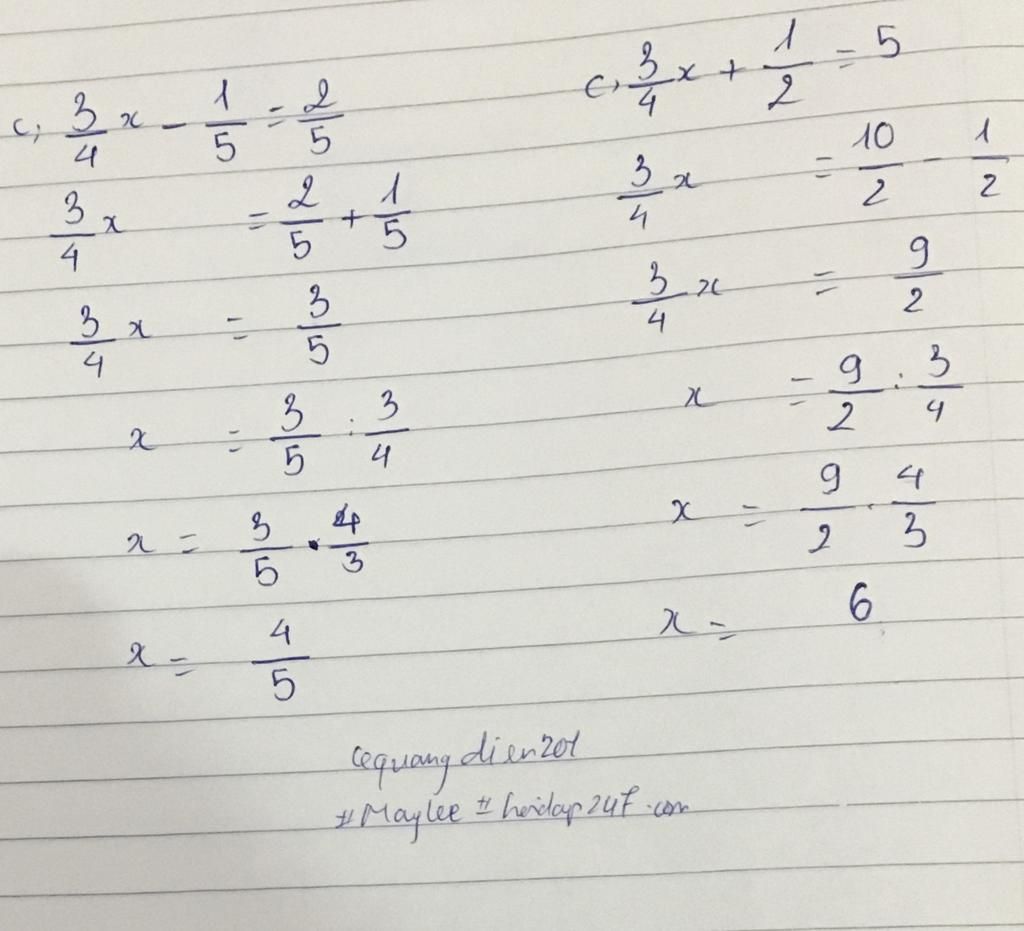 c, 3/4 x - 1/5 = 2/5
3/4 x = 2/5 + 1/5
3/4 x = 3/5
x = 3/5 : 3/4
x = 3/5 . 4/3
x = 4/5
c, 3/4 x + 1/2 = 5
3/4 x = 10/2 - 1/2
3/4 x = 9/2
x = 9/2 : 3/4
x = 9/2 . 4/3
x = 6
lequangdien201
#Maylee # hoidap247.com